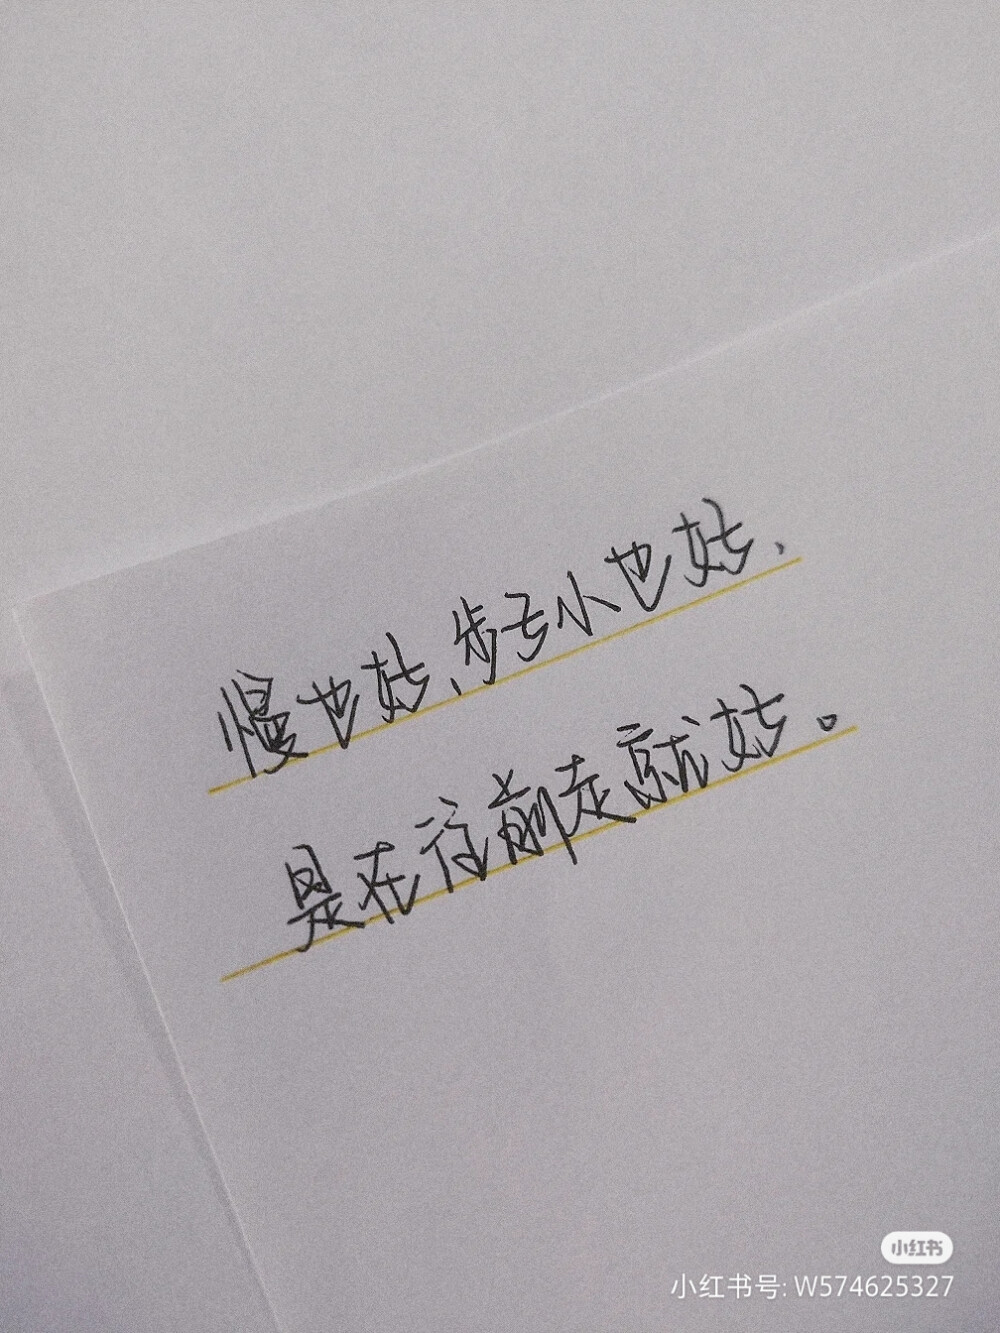 慢也好，步子小也好，
是在往前走就好。
小红书
小红书号: W574625327